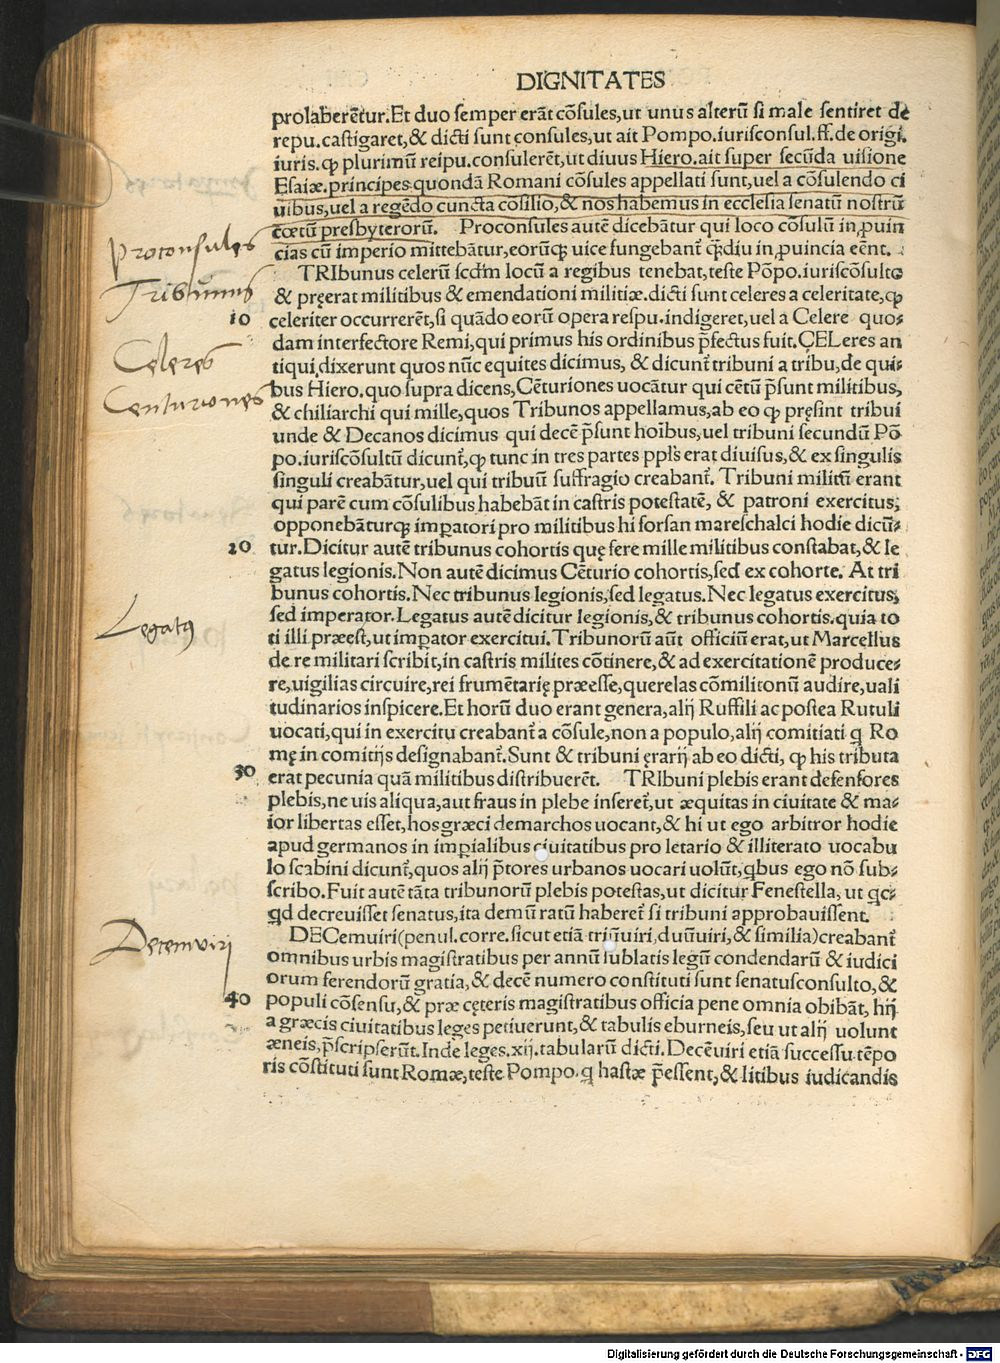 DIGNITATES
prolaberētur.Et duo semper erāt cōsules,ut unus alterū si male sentiret de
repu.castigaret,& dicti sunt consules,ut ait Pompo.iurisconsul.ff.de origi.
iuris.ꝙ plurimū reipu.consulerēt,ut diuus Hiero.ait super secūda uisione
Esaiæ.principes quondā Romani cōsules appellati sunt,uel a cōsulendo ci
uibus,uel a regēdo cuncta cōsilio,& nos habemus in ecclesia senatū nostrū
cœtū presbyterorū. Proconsules autē dicebātur qui loco cōsulū in ꝓuin
cias cū imperio mittebātur,eorūqꝫ uice fungebant̃ q̄diu in ꝓuincia eēnt.
Proconsules
TRIbunus celerū scd̄m locū a regibus tenebat,teste Pōpo.iuriscōsulto
Tribunus
& pręerat militibus & emendationi militiæ.dicti sunt celeres a celeritate,ꝙ
10 celeriter occurrerēt,si quādo eorū opera respu.indigeret,uel a Celere quo⸗
dam interfectore Remi,qui primus his ordinibus p̄fectus fuit.CELeres an
Celeres
tiqui dixerunt quos nūc equites dicimus, & dicunt̃ tribuni a tribu,de qui⸗
bus Hiero.quo supra dicens,Cēturiones uocātur qui cētū p̄sunt militibus,
Centuriones
& chiliarchi qui mille,quos Tribunos appellamus,ab eo ꝙ pręsint tribui
unde & Decanos dicimus qui decē p̄sunt hoībus,uel tribuni secundū Pō
po.iuriscōsultū dicunt̃,ꝙ tunc in tres partes ppl̄s erat diuisus,& ex singulis
singuli creabātur,uel qui tribuū suffragio creabant̃. Tribuni militū erant
qui parē cum cōsulibus habebāt in castris potestatē, & patroni exercitus,
opponebāturqꝫ imp̄atori pro militibus hi forsan mareschalci hodie dicū⸗
20 tur.Dicitur autē tribunus cohortis quę fere mille militibus constabat,& le
gatus legionis.Non autē dicimus Cēturio cohortis,sed ex cohorte. At tri
bunus cohortis.Nec tribunus legionis,sed legatus.Nec legatus exercitus,
sed imperator.Legatus autē dicitur legionis,& tribunus cohortis.quia to
Legatus
ti illi præest,ut imp̄ator exercitui.Tribunorū aūt officiū erat,ut Marcellus
de re militari scribit,in castris milites cōtinere,& ad exercitationē produce⸗
re,uigilias circuire,rei frumētarię præesse,querelas cōmilitonū audire,uali
tudinarios inspicere.Et horū duo erant genera,alij Ruffili ac postea Rutuli
uocati,qui in exercitu creabant̃ a cōsule,non a populo,alij comitiati q̄ Ro
mę in comitijs designabant̃.Sunt & tribuni ęrarij ab eo dicti, ꝙ his tributa
30 erat pecunia quā militibus distribuerēt. TRIbuni plebis erant defensores
plebis,ne uis aliqua,aut fraus in plebe inseret̃,ut æquitas in ciuitate & ma⸗
ior libertas esset,hos græci demarchos uocant,& hi ut ego arbitror hodie
apud germanos in imp̄ialibus ciuitatibus proletario & illiterato uocabu
lo scabini dicunt̃,quos alij p̄tores urbanos uocari uolūt,q̄bus ego nō sub⸗
scribo.Fuit autē tāta tribunorū plebis potestas,ut dicitur Fenestella, ut q̄c⸗
q̄d decreuisset senatus,ita demū ratū haberet̃ si tribuni approbauissent.
DECemuiri(penul.corre.sicut etiā triūuiri,duūuiri,& similia)creabant̃
Decemuiri
omnibus urbis magistratibus per annū sublatis legū condendarū & iudici
orum ferendorū gratia,& decē numero constituti sunt senatusconsulto,&
40 populi cōsensu,& præ cęteris magistratibus officia pene omnia obibāt, hij
a græcis ciuitatibus leges petiuerunt,& tabulis eburneis,seu ut alij uolunt
æneis,p̄scripserūt.Inde leges.xij.tabularū dicti.Decēuiri etiā successu tēpo
ris cōstituti sunt Romæ,teste Pompo.q̄ hastæ p̄essent,& litibus iudicandis
Digitalisierung gefördert durch die Deutsche Forschungsgemeinschaft - DFG